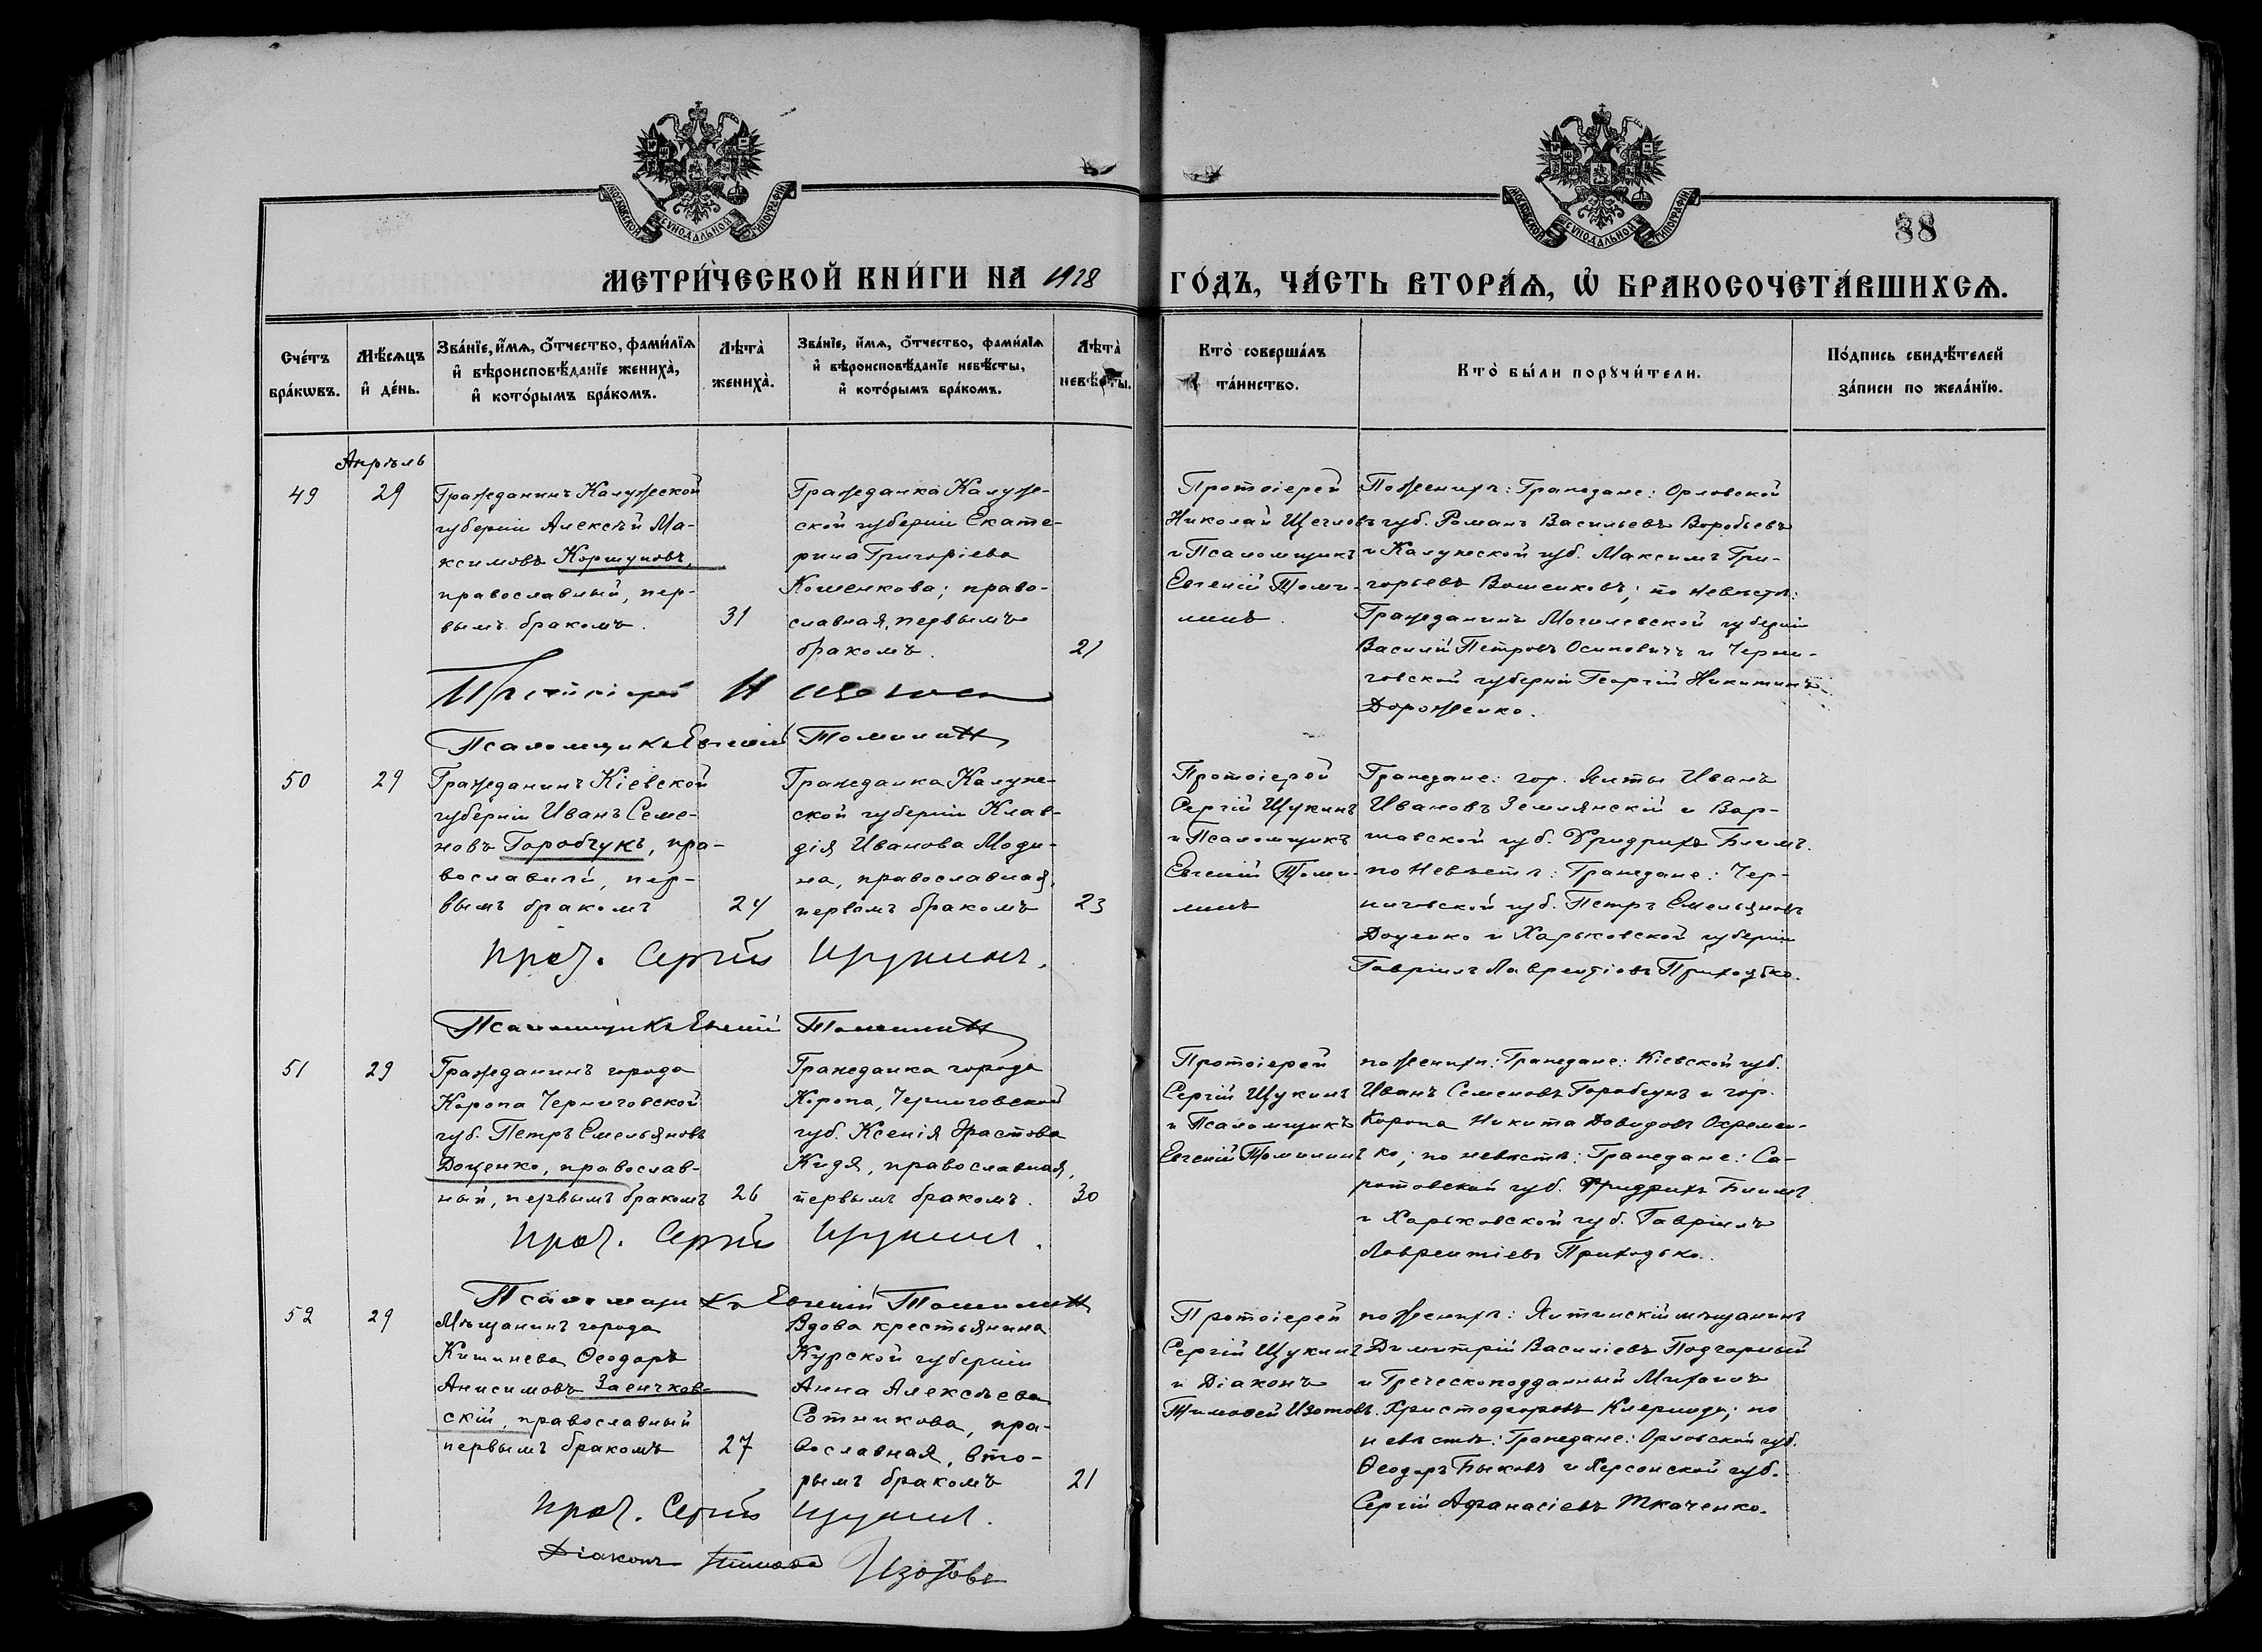 МОСКОВСКОЙ СѴНОДАЛЬНОЙ ТИПОГРАФІИ
МОСКОВСКОЙ СѴНОДАЛЬНОЙ ТИПОГРАФІИ
88
МЕТРИ́ЧЕСКОЙ КНИ́ГИ НА 1918 ГО́ДЪ, ЧА́СТЬ ВТОРА́Ѧ, Ѡ҆ БРАКОСОЧЕТА́ВШИХСѦ.
Сче́тъ бра́кѡвъ.
Мѣ́сѧцъ и҆ де́нь.
Зва́нїе, и҆́мѧ, ѻ҆́тчество, фами́лїѧ
и҆ вѣроисповѣ́данїе жениха̀,
и҆ кото́рымъ бра́комъ.
Лѣта̀ жениха̀.
Зва́нїе, и҆́мѧ, ѻ҆́тчество, фами́лїѧ
и҆ вѣроисповѣ́данїе невѣ́сты,
и҆ кото́рымъ бра́комъ.
Лѣта̀ невѣ́сты.
Кто̀ соверша́лъ
та́инство.
Кто̀ бы́ли порꙋчи́тели.
По́дпись свидѣ́телей
за́писи по жела́нїю.
Апрѣль
49
29
Гражданинъ Калужской
губерніи Алексѣй Ма-
ксимовъ Коршуновъ,
православный, пер-
вымъ бракомъ.
31
Гражданка Калуж-
ской губерніи Екате-
рина Григоріева
Кошенкова; право-
славная, первымъ
бракомъ.
21
Протоіерей
Николай Щегловъ
и Псаломщикъ
Евгеній Томи-
линъ.
По женихѣ: Граждане: Орловской
губ. Романъ Васильевъ Воробьевъ
и Калужской губ. Максимъ Гри-
горьевъ Вошенковъ; по невѣстѣ:
Гражданинъ Могилевской губерніи
Василій Петровъ Осиповичъ и Черни-
говской губерніи Георгій Никитинъ
Дорошенко.
Протоіерей Н Щеглов
Псаломщикъ Евгеній Томилинъ
50
29
Гражданинъ Кіевской
губерніи Иванъ Семе-
новъ Горобчукъ, пра-
вославный, пер-
вымъ бракомъ
24
Гражданка Калуж-
ской губерніи Клав-
дія Иванова Моди-
на, православная,
первымъ бракомъ
23
Протоіерей
Сергій Щукинъ
и Псаломщикъ
Евгеній Томи-
линъ
Граждане: гор. Ялты Иванъ
Ивановъ Землянскій и Вар-
шавской губ. Фридрихъ Блимъ.
по невѣстѣ: Граждане: Чер-
ниговской губ. Петръ Емельяновъ
Доценко и Харьковской губерніи
Гавріилъ Лаврентіевъ Приходько.
Прот. Сергій Щукинъ.
Псаломщикъ Евгеній Томилинъ
51
29
Гражданинъ города
Коропа Черниговской
губ. Петръ Емельяновъ
Доценко, православ-
ный, первымъ бракомъ
26
Гражданка города
Коропа, Черниговской
губ. Ксенія Эрастова
Кидя, православная,
первымъ бракомъ.
30
Протоіерей
Сергій Щукинъ
и Псаломщикъ
Евгеній Томилинъ
по женихѣ: Граждане: Кіевской губ.
Иванъ Семеновъ Горобчукъ и гор.
Коропа Никита Давидовъ Охремен-
ко; по невѣстѣ: Граждане: Са-
ратовской губ. Фридрихъ Блимъ
и Харьковской губ. Гавріилъ
Лаврентіевъ Приходько.
Прот. Сергій Щукинъ.
Псаломщикъ Евгеній Томилинъ
52
29
Мѣщанинъ города
Кишинева Ѳеодоръ
Анисимовъ Заенчков-
скій, православный
первымъ бракомъ
27
Вдова крестьянина
Курской губерніи
Анна Алексѣева
Сотникова, пра-
вославная, вто-
рымъ бракомъ
21
Протоіерей
Сергій Щукинъ
и Діаконъ
Тимоѳей Изотовъ.
по женихѣ: Ялтинскій мѣщанинъ
Димитрій Василіевъ Подгорный
и Греческоподданный Михаилъ
Христофоровъ; по
невѣстѣ: Граждане: Орловской губ.
Ѳеодоръ Быковъ и Херсонской губ.
Сергій Афанасіевъ Ткаченко.
Прот. Сергій Щукинъ.
Діаконъ Тимоѳей Изотовъ